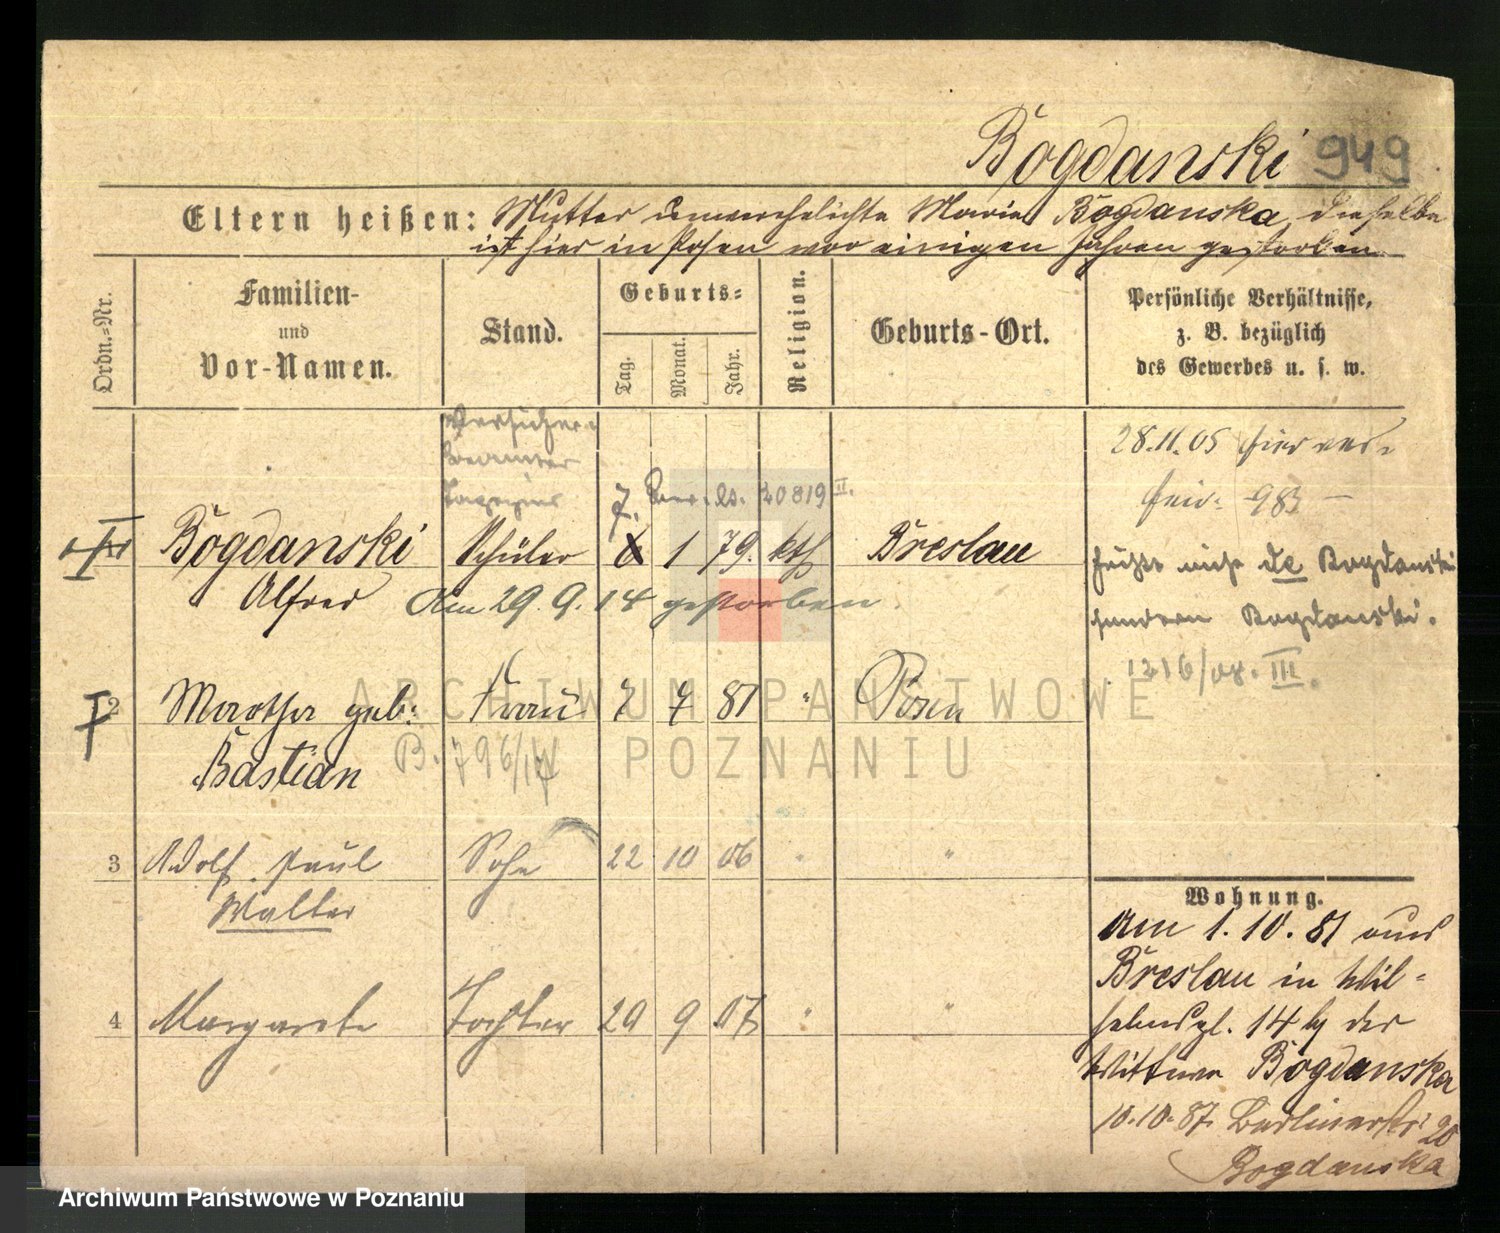 Bogdanski 949
Eltern heißen: Mutter unverehelichte Maria Bogdanska, dieselbe
ist hier in Posen vor einigen Jahren gestorben.
Ordn.-Nr.
Familien-
und
Vor-Namen.
Stand.
Geburts-
Tag.
Monat.
Jahr.
Religion.
Geburts-Ort.
Persönliche Verhältnisse,
z. B. bezüglich
des Gewerbes u. s. w.
28.11.05
983
7. 20819 II.
Bogdanski Schüler 6 1 79. kth Breslau
Alfred Am 29. 9. 14 gestorben
nicht de Bogdanski
sondern Bogdanski.
1216/08. III.
2 Martha geb: Frau 7 7 81 " Posen
Bastian B. 796/17
3 Adolf Paul Sohn 22 10 06 " "
Walter
4 Margarete Tochter 20 9 07 " "
Wohnung.
Am 1. 10. 81 aus
Breslau in Wil-
helmspl. 14 b der
Wittwe Bogdanska
10.10.87. Berlinerstr. 20
Bogdanska
ARCHIWUM PAŃSTWOWE
W POZNANIU
Archiwum Państwowe w Poznaniu